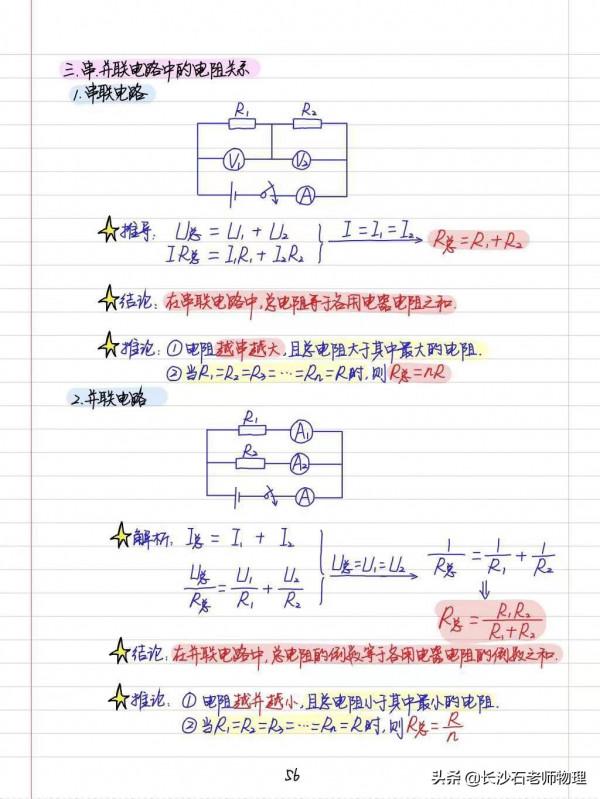 三.串.并联电路中的电阻关示
1.串联电路
R₁ R₂
V₁ V₂
A
推导: U总=U₁+U₂ I=I₁=I₂ R总=R₁+R₂
IR总=I₁R₁+I₂R₂
结论: 在串联电路中,总电阻等于各用电器电阻之和.
推论: ①电阻越串越大,且总电阻大于其中最大的电阻.
②当R₁=R₂=R₃=…=Rn=R时,则R总=nR
2.并联电路
R₁ A₁
R₂ A₂
A
解析: I总=I₁+I₂
U总/R总=U₁/R₁+U₂/R₂ U总=U₁=U₂ 1/R总=1/R₁+1/R₂
R总=R₁R₂/(R₁+R₂)
结论: 在并联电路中,总电阻的倒数等于各用电器电阻的倒数之和.
推论: ①电阻越并越小,且总电阻小于其中最小的电阻.
②当R₁=R₂=R₃=…=Rn=R时,则R总=R/n
56
头条@长沙石老师物理